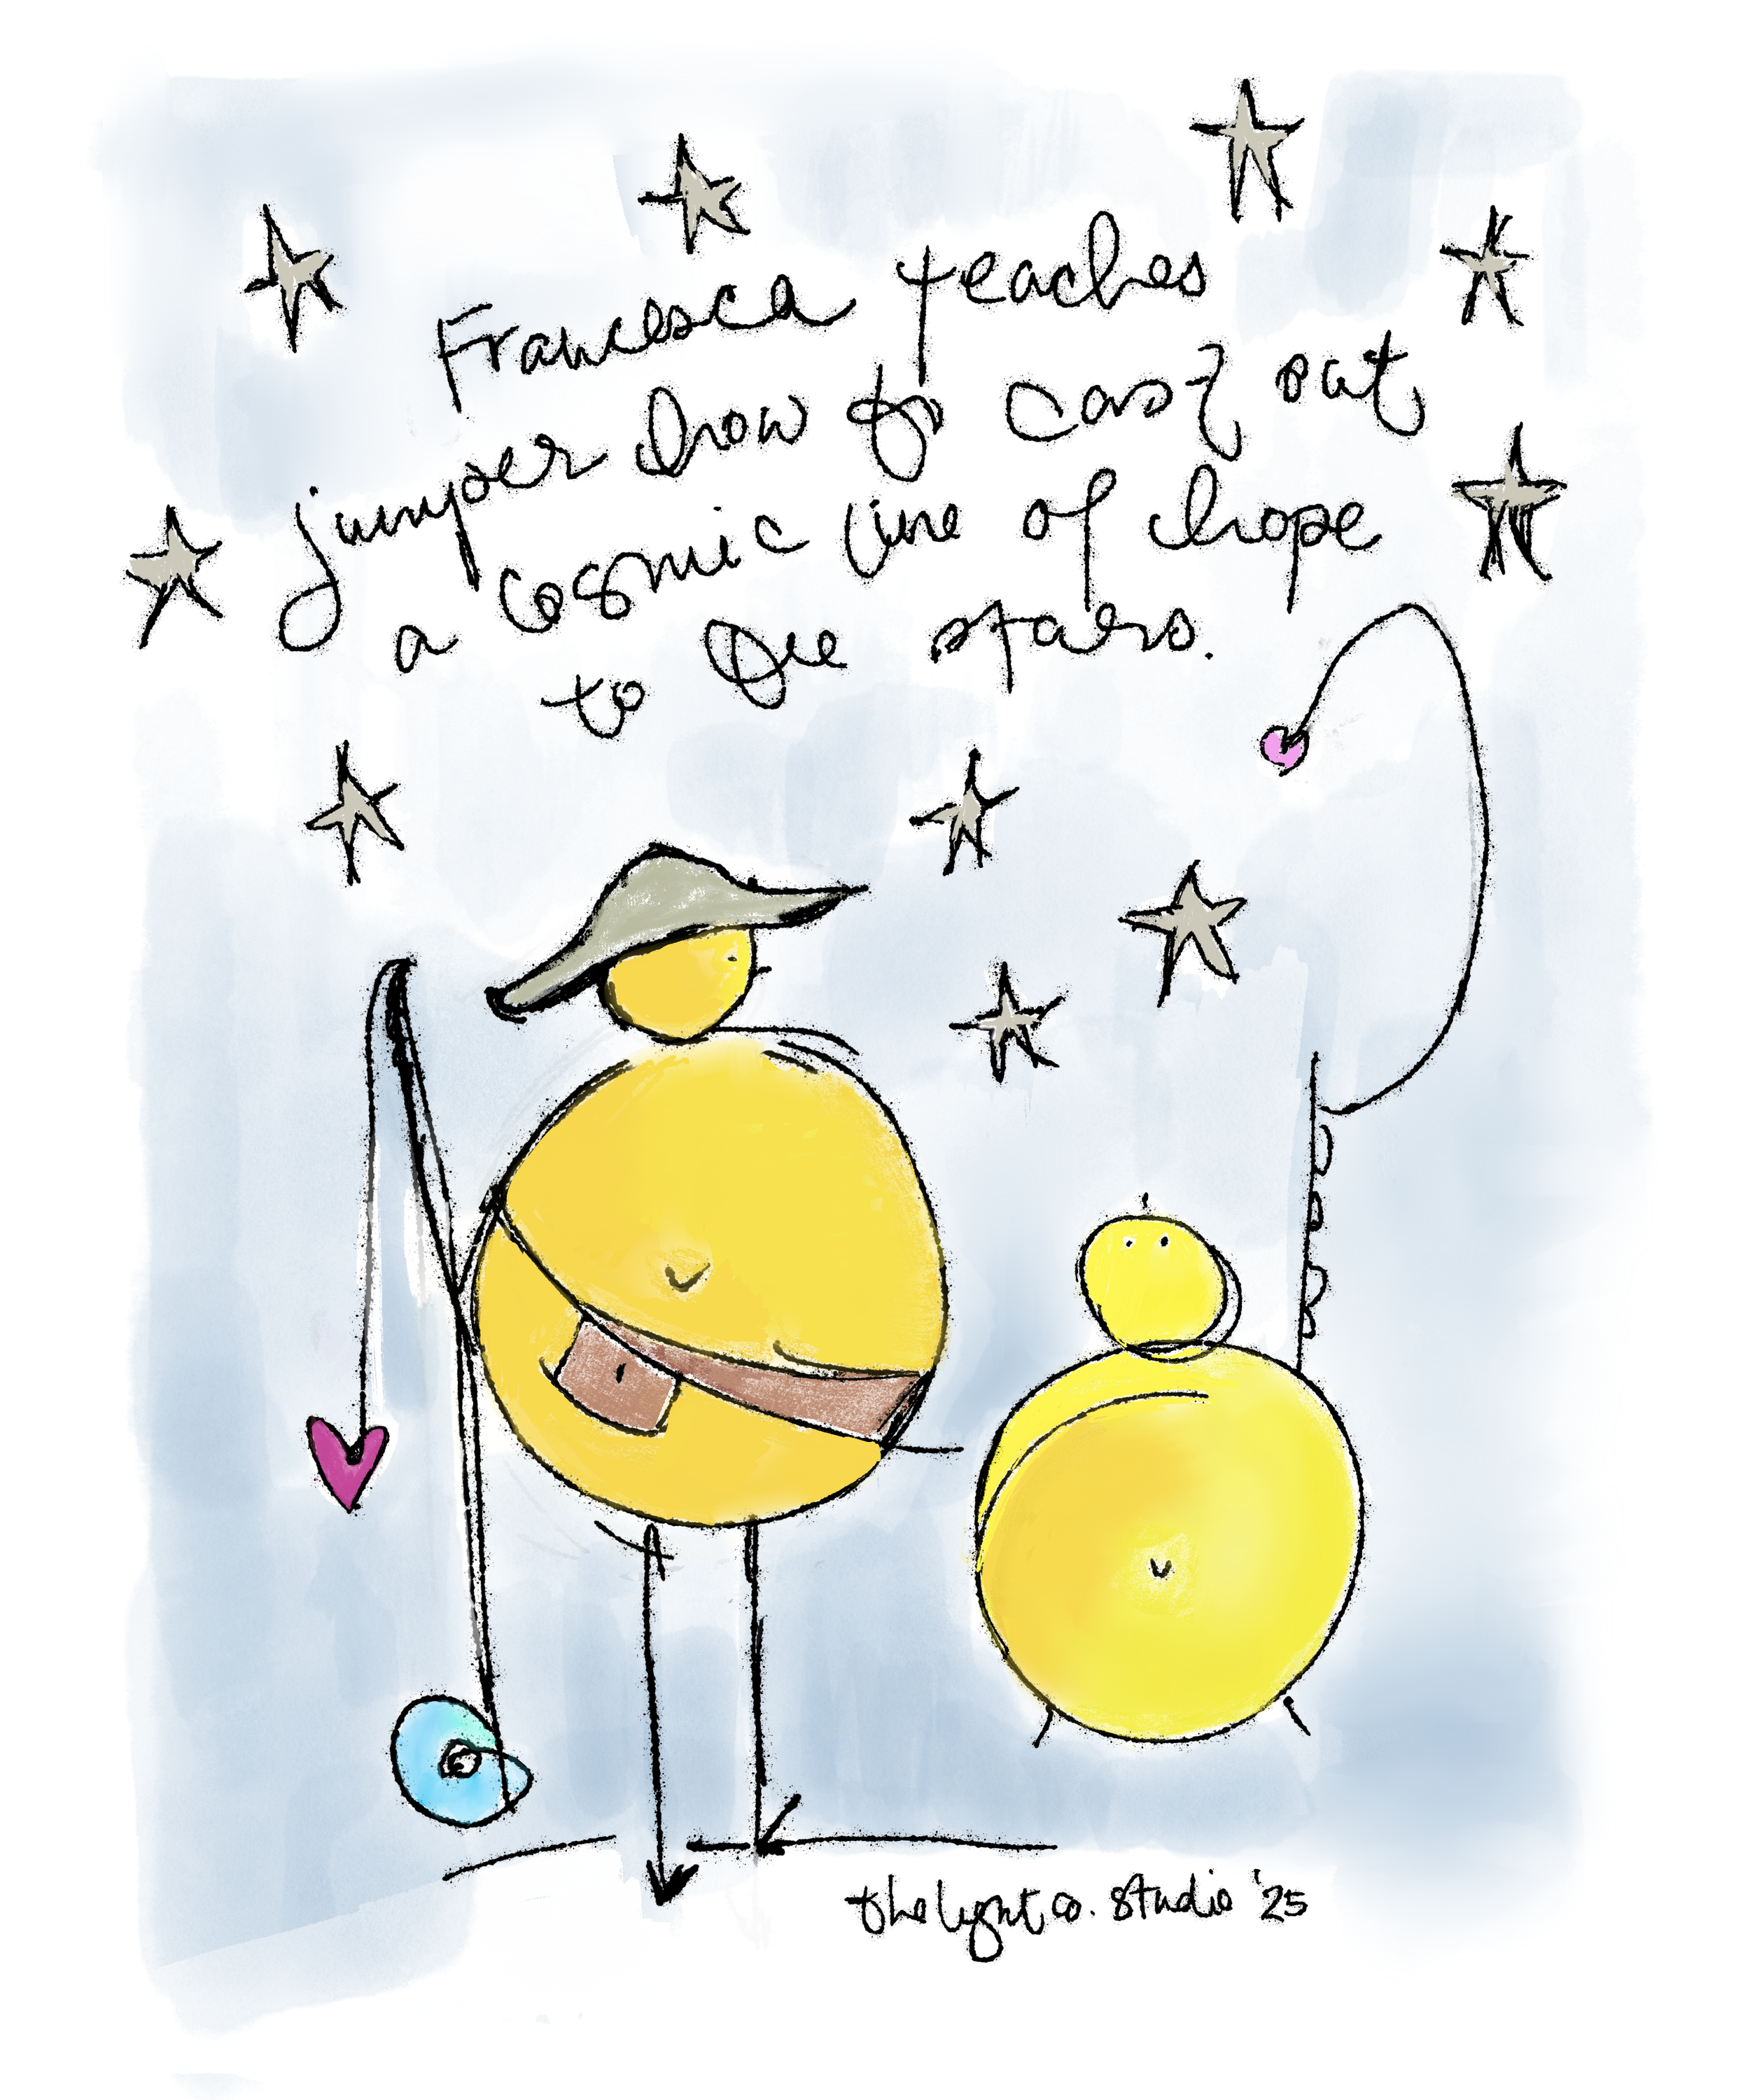 Francesca teaches
jumper how to cast out
a cosmic line of hope
to the stars.
the light co. studio '25